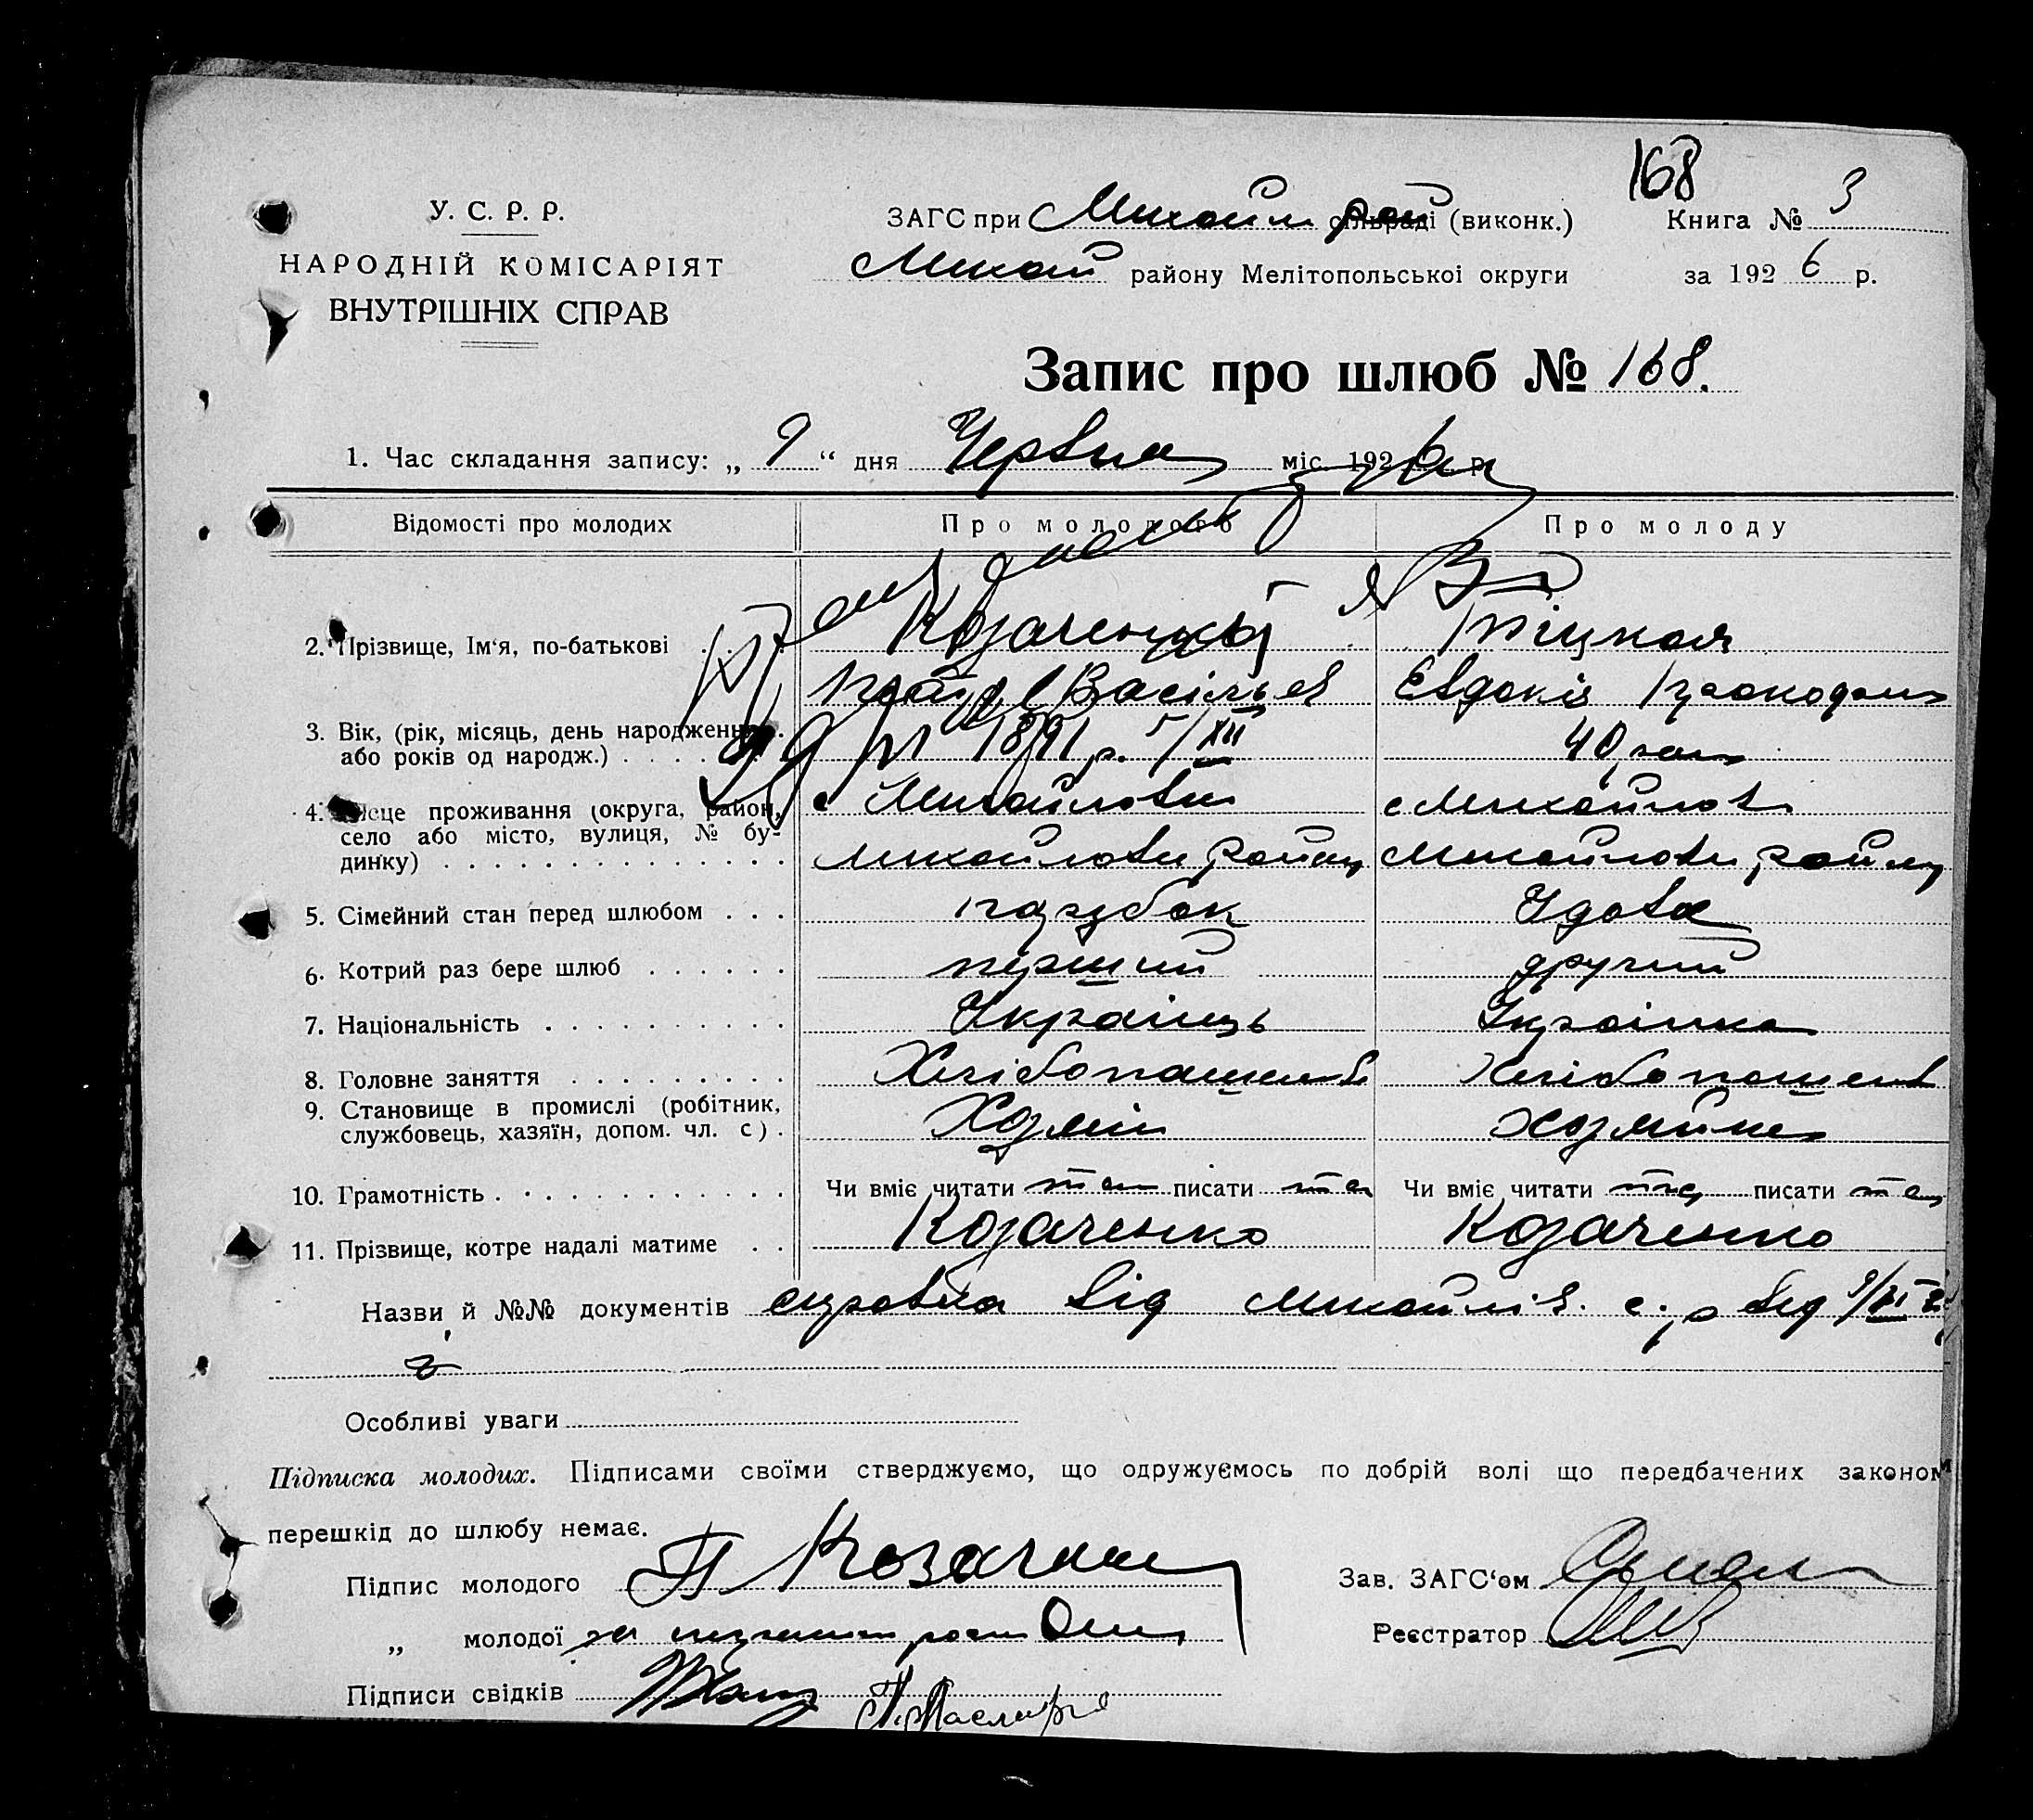 168
У. С. Р. Р.
НАРОДНІЙ КОМІСАРІЯТ
ВНУТРІШНІХ СПРАВ
ЗАГС при Михайл рай сільраді (виконк.) Книга № 3
Михай району Мелітопольської округи за 1926 р.
Запис про шлюб № 168.
1. Час складання запису: „ 9 “ дня Червня міс. 1926 р.
Відомості про молодих Про молодого Про молоду
2. Прізвище, Ім'я, по-батькові Козаченко
Васільев Евдокія
3. Вік, (рік, місяць, день народження 1891 р. 5/XII 40 рок
або років од народж.)
4. Місце проживання (округа, район, с Михайловки с Михайлов
село або місто, вулиця, № бу-
динку) Михайловки району Михайловки району
5. Сімейний стан перед шлюбом парубок Удова
6. Котрий раз бере шлюб перший другий
7. Національність Українць Українка
8. Головне заняття Хлібопашень Хлібопашень
9. Становище в промислі (робітник, Хозяїн Хозяйка
службовець, хазяїн, допом. чл. с).
10. Грамотність Чи вміє читати так писати так Чи вміє читати писати так
11. Прізвище, котре надалі матиме Козаченко Козаченко
Назви й №№ документів справка від Михайлів. с. р від 9/VI
Особливі уваги
Підписка молодих. Підписами своїми стверджуємо, що одружуємось по добрій волі що передбачених законом
перешкід до шлюбу немає.
Підпис молодого П Козаченко Зав. ЗАГС'ом
„ молодої за Реєстратор
Підписи свідків